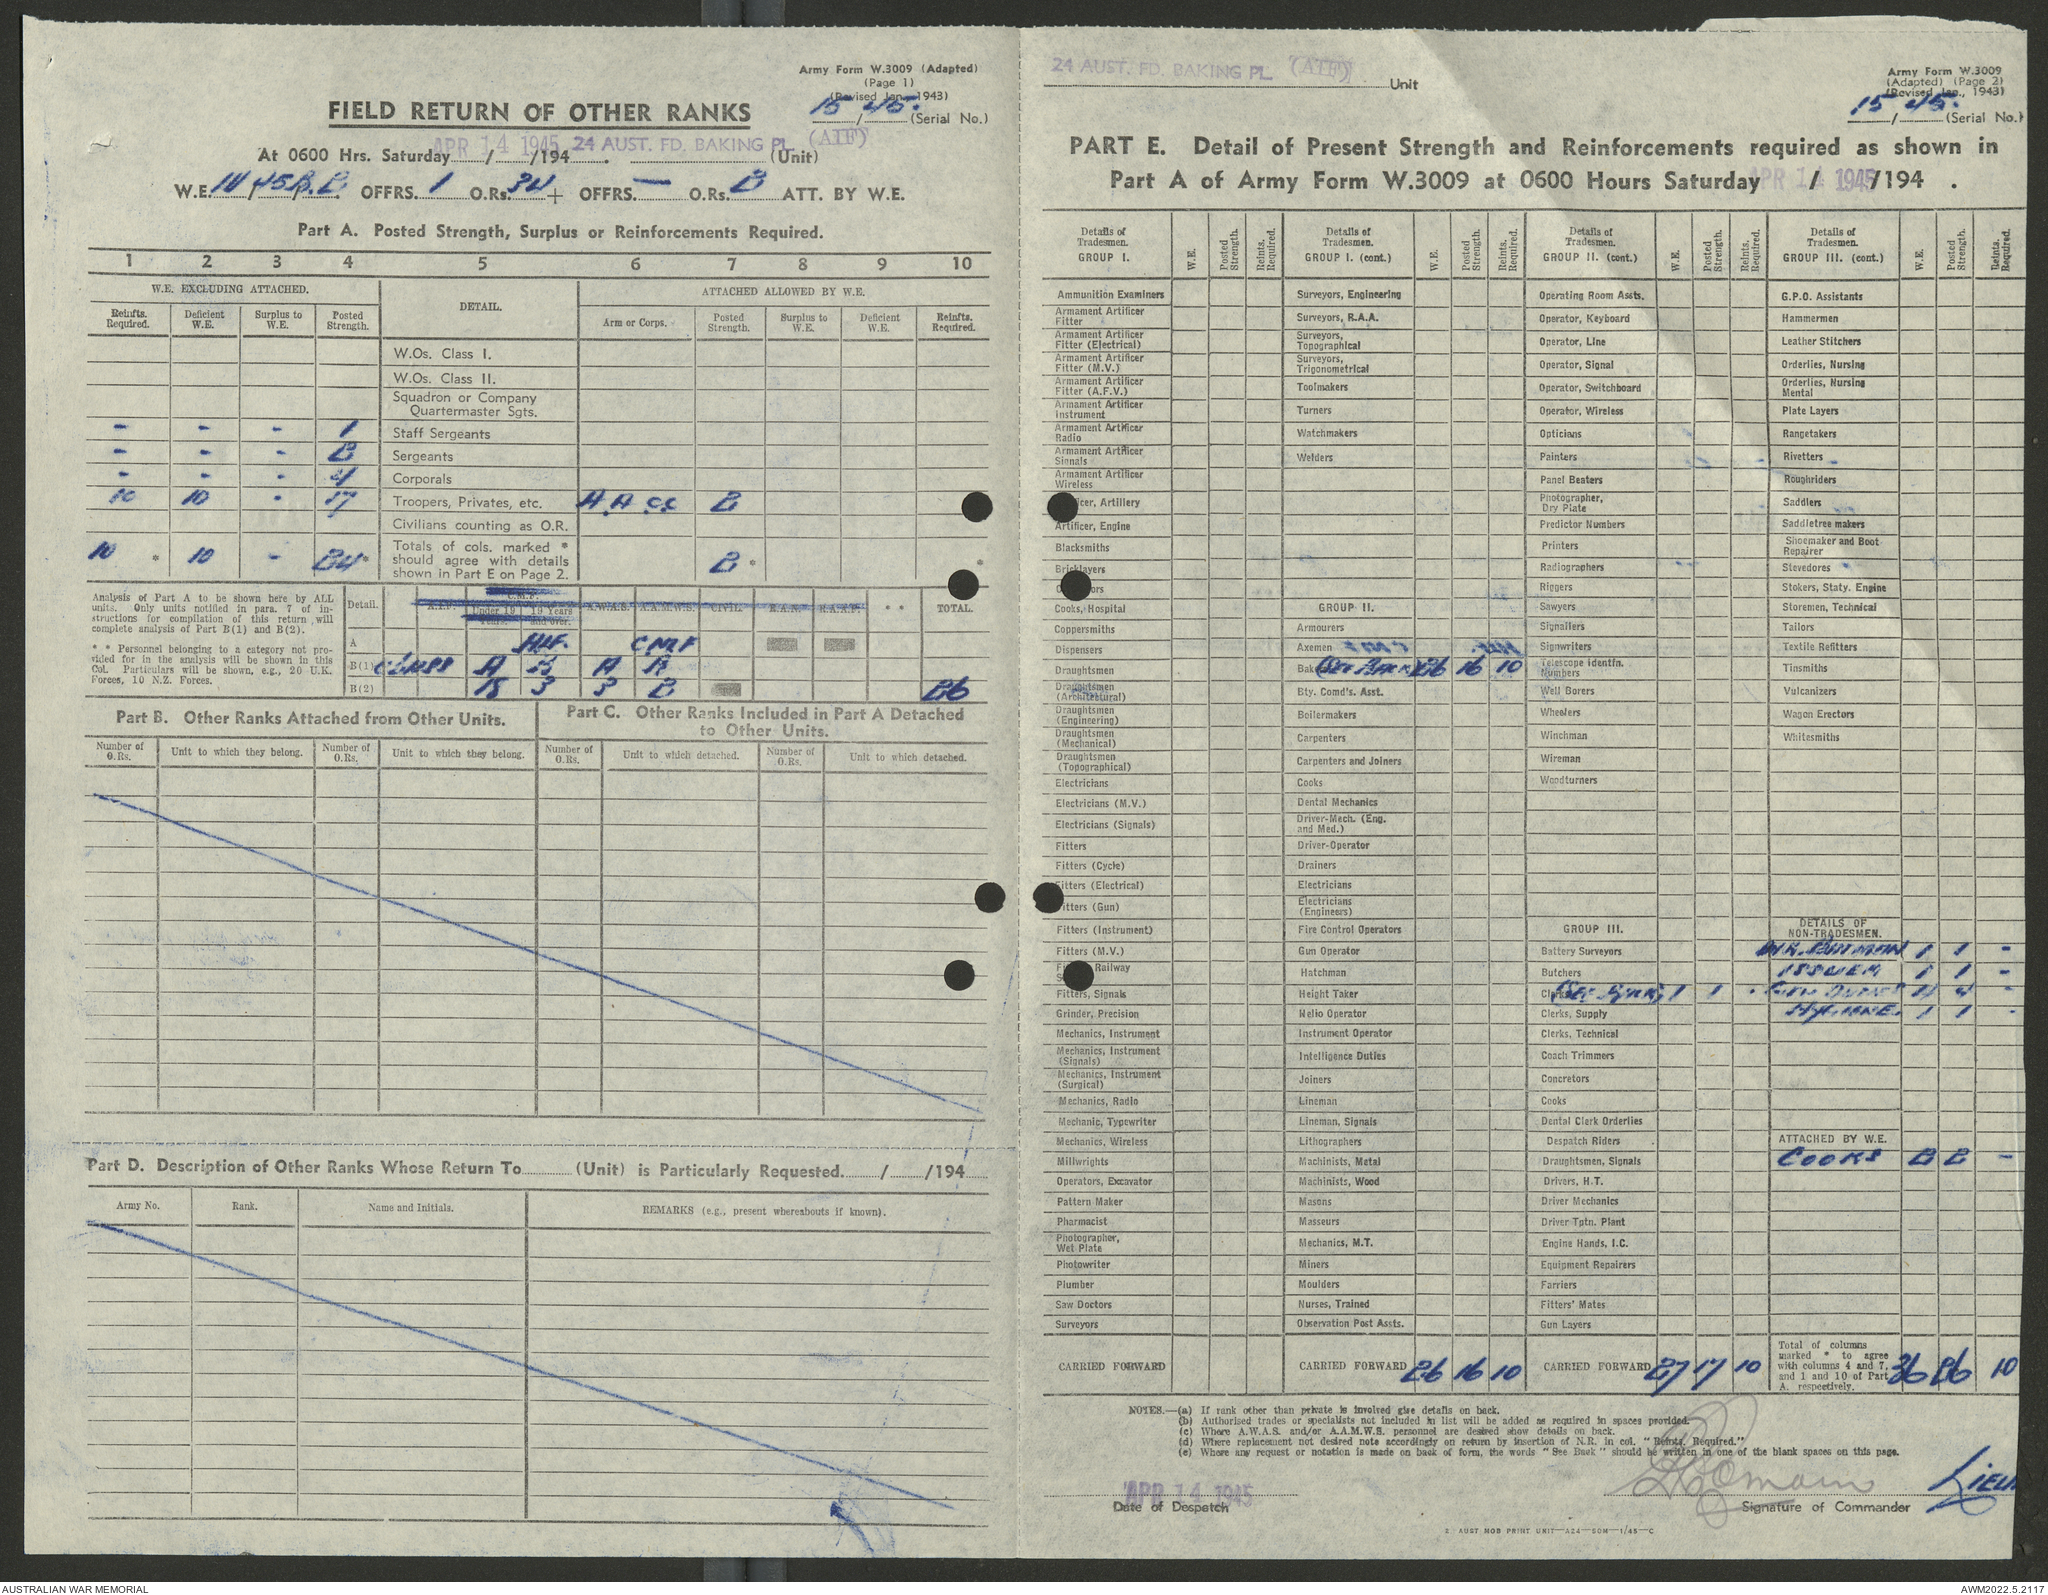 Army Form W.3009 (Adapted)
(Page 1)
(Revised Jan., 1943)
15/45. (Serial No.)
FIELD RETURN OF OTHER RANKS
At 0600 Hrs. Saturday APR 14 1945 / /194 . 24 AUST. FD. BAKING PL (AIF) (Unit)
W.E. OFFRS. 1 O.Rs. 34 + OFFRS. — O.Rs. 2 ATT. BY W.E.
Part A. Posted Strength, Surplus or Reinforcements Required.
1 2 3 4 5 6 7 8 9 10
W.E. EXCLUDING ATTACHED. DETAIL. ATTACHED ALLOWED BY W.E.
Reinfts. Required. Deficient W.E. Surplus to W.E. Posted Strength. Arm or Corps. Posted Strength. Surplus to W.E. Deficient W.E. Reinfts. Required.
W.Os. Class I.
W.Os. Class II.
Squadron or Company Quartermaster Sgts.
- - - 1 Staff Sergeants
- - - 2 Sergeants
- - - 4 Corporals
10 10 - 17 Troopers, Privates, etc. A.A.C.C. 2
Civilians counting as O.R.
10 * 10 - 24 * Totals of cols. marked * should agree with details shown in Part E on Page 2. 2 * *
Analysis of Part A to be shown here by ALL units. Only units notified in para. 7 of instructions for compilation of this return will complete analysis of Part B(1) and B(2).
* * Personnel belonging to a category not provided for in the analysis will be shown in this Col. Particulars will be shown, e.g., 20 U.K. Forces, 10 N.Z. Forces.
Detail. A.I.F. C.M.F. Under 19 Years. 19 Years and over. A.W.A.S. A.A.M.W.S. CIVIL. R.A.N. R.A.A.F. * * TOTAL.
A AIF. CMF
B(1) CLASS A B A B
B(2) 18 3 3 2 26
Part B. Other Ranks Attached from Other Units.
Number of O.Rs. Unit to which they belong. Number of O.Rs. Unit to which they belong.
Part C. Other Ranks Included in Part A Detached to Other Units.
Number of O.Rs. Unit to which detached. Number of O.Rs. Unit to which detached.
Part D. Description of Other Ranks Whose Return To (Unit) is Particularly Requested / /194
Army No. Rank. Name and Initials. REMARKS (e.g., present whereabouts if known).
24 AUST. FD. BAKING PL (AIF) Unit
Army Form W.3009
(Adapted) (Page 2)
(Revised Jan., 1943)
15/45. (Serial No.)
PART E. Detail of Present Strength and Reinforcements required as shown in
Part A of Army Form W.3009 at 0600 Hours Saturday APR 14 1945 / /194 .
Details of Tradesmen. GROUP I. W.E. Posted Strength. Reinfts. Required.
Ammunition Examiners
Armament Artificer Fitter
Armament Artificer Fitter (Electrical)
Armament Artificer Fitter (M.V.)
Armament Artificer Fitter (A.F.V.)
Armament Artificer Instrument
Armament Artificer Radio
Armament Artificer Signals
Armament Artificer Wireless
icer, Artillery
Artificer, Engine
Blacksmiths
Bricklayers
Cooks, Hospital
Coppersmiths
Dispensers
Draughtsmen
Draughtsmen (Architectural)
Draughtsmen (Engineering)
Draughtsmen (Mechanical)
Draughtsmen (Topographical)
Electricians
Electricians (M.V.)
Electricians (Signals)
Fitters
Fitters (Cycle)
Fitters (Electrical)
Fitters (Gun)
Fitters (Instrument)
Fitters (M.V.)
Railway
Fitters, Signals
Grinder, Precision
Mechanics, Instrument
Mechanics, Instrument (Signals)
Mechanics, Instrument (Surgical)
Mechanics, Radio
Mechanic, Typewriter
Mechanics, Wireless
Millwrights
Operators, Excavator
Pattern Maker
Pharmacist
Photographer, Wet Plate
Photowriter
Plumber
Saw Doctors
Surveyors
CARRIED FORWARD
Details of Tradesmen. GROUP I. (cont.) W.E. Posted Strength. Reinfts. Required.
Surveyors, Engineering
Surveyors, R.A.A.
Surveyors, Topographical
Surveyors, Trigonometrical
Toolmakers
Turners
Watchmakers
Welders
GROUP II.
Armourers
Axemen
Bakers (See Back) 26 16 10
Bty. Comd's. Asst.
Boilermakers
Carpenters
Carpenters and Joiners
Cooks
Dental Mechanics
Driver-Mech. (Eng. and Med.)
Driver-Operator
Drainers
Electricians
Electricians (Engineers)
Fire Control Operators
Gun Operator
Hatchman
Height Taker
Helio Operator
Instrument Operator
Intelligence Duties
Joiners
Lineman
Lineman, Signals
Lithographers
Machinists, Metal
Machinists, Wood
Masons
Masseurs
Mechanics, M.T.
Miners
Moulders
Nurses, Trained
Observation Post Assts.
CARRIED FORWARD 26 16 10
Details of Tradesmen. GROUP II. (cont) W.E. Posted Strength. Reinfts. Required.
Operating Room Assts.
Operator, Keyboard
Operator, Line
Operator, Signal
Operator, Switchboard
Operator, Wireless
Opticians
Painters
Panel Beaters
Photographer, Dry Plate
Predictor Numbers
Printers
Radiographers
Riggers
Sawyers
Signallers
Signwriters
Telescope Identfn. Numbers
Well Borers
Wheelers
Winchman
Wireman
Woodturners
GROUP III.
Battery Surveyors
Butchers
Clerks (See Back) 1 1 -
Clerks, Supply
Clerks, Technical
Coach Trimmers
Concretors
Cooks
Dental Clerk Orderlies
Despatch Riders
Draughtsmen, Signals
Drivers, H.T.
Driver Mechanics
Driver Tptn. Plant
Engine Hands, I.C.
Equipment Repairers
Farriers
Fitters' Mates
Gun Layers
CARRIED FORWARD 27 17 10
Details of Tradesmen. GROUP III. (cont.) W.E. Posted Strength. Reinfts. Required.
G.P.O. Assistants
Hammermen
Leather Stitchers
Orderlies, Nursing
Orderlies, Nursing Mental
Plate Layers
Rangetakers
Rivetters
Roughriders
Saddlers
Saddletree makers
Shoemaker and Boot Repairer
Stevedores
Stokers, Staty. Engine
Storemen, Technical
Tailors
Textile Refitters
Tinsmiths
Vulcanizers
Wagon Erectors
Whitesmiths
DETAILS OF NON-TRADESMEN.
BATMAN 1 1 -
ISSUER 1 1 -
GEN DUTIES 4 4 -
HYGIENE. 1 1 -
ATTACHED BY W.E.
COOKS 2 2 -
Total of columns marked * to agree with columns 4 and 7, and 1 and 10 of Part A. respectively. 36 26 10
NOTES.—(a) If rank other than private is involved give details on back.
(b) Authorised trades or specialists not included in list will be added as required in spaces provided.
(c) Where A.W.A.S. and/or A.A.M.W.S. personnel are desired show details on back.
(d) Where replacement not desired note accordingly on return by insertion of N.R. in col. "Reinfts. Required."
(e) Where any request or notation is made on back of form, the words "See Back" should be written in one of the blank spaces on this page.
APR 14 1945
Date of Despatch
Lieut
Signature of Commander
2 AUST MOB PRINT UNIT—A24—50M—1/45—C
AUSTRALIAN WAR MEMORIAL
AWM2022.5.2117